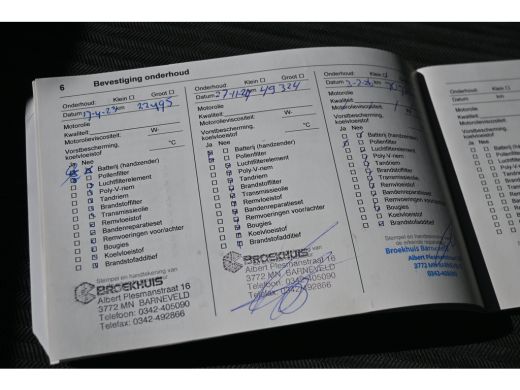 6 Bevestiging onderhoud
Onderhoud: Klein Groot
Datum km 22495
Motorolie
Kwaliteit
Motorolieviscositeit: W-
Vorstbescherming, koelvloeistof °C
Ja Nee
Batterij (handzender)
Pollenfilter
Luchtfilterelement
Poly-V-riem
Tandriem
Brandstoffilter
Transmissieolie
Remvloeistof
Bandenreparatieset
Remvoeringen voor/achter
Bougies
Koelvloeistof
Brandstofadditief
Stempel en handtekening van
BROEKHUIS
Albert Plesmanstraat 16
3772 MN BARNEVELD
Telefoon: 0342-405090
Telefax: 0342-492866
Onderhoud: Klein Groot
Datum 27-11-24 km 49324
Motorolie
Kwaliteit
Motorolieviscositeit: W-
Vorstbescherming, koelvloeistof °C
Ja Nee
Batterij (handzender)
Pollenfilter
Luchtfilterelement
Poly-V-riem
Tandriem
Brandstoffilter
Transmissieolie
Remvloeistof
Bandenreparatieset
Remvoeringen voor/achter
Bougies
Koelvloeistof
Brandstofadditief
BROEKHUIS
Albert Plesmanstraat 16
3772 MN BARNEVELD
Telefoon: 0342-405090
Telefax: 0342-492866
Onderhoud: Klein Groot
Datum km
Motorolie
Kwaliteit
Motorolieviscositeit:
Vorstbescherming, koelvloeistof
Ja Nee
Batterij (handzender)
Pollenfilter
Luchtfilterelement
Poly-V-riem
Tandriem
Brandstoffilter
Transmissieolie
Remvloeistof
Bandenreparatieset
Remvoeringen voor/achter
Bougies
Koelvloeistof
Brandstofadditief
Stempel en handtekening van
de erkende reparateur
Broekhuis
Albert Plesmanstraat 16
3772 MN BARNEVELD
0342-405090
Onderhoud:
Datum
Motorolie
Kwaliteit
Motorolieviscositeit
Vorstbescherming,
koelvloeistof
Ja Nee